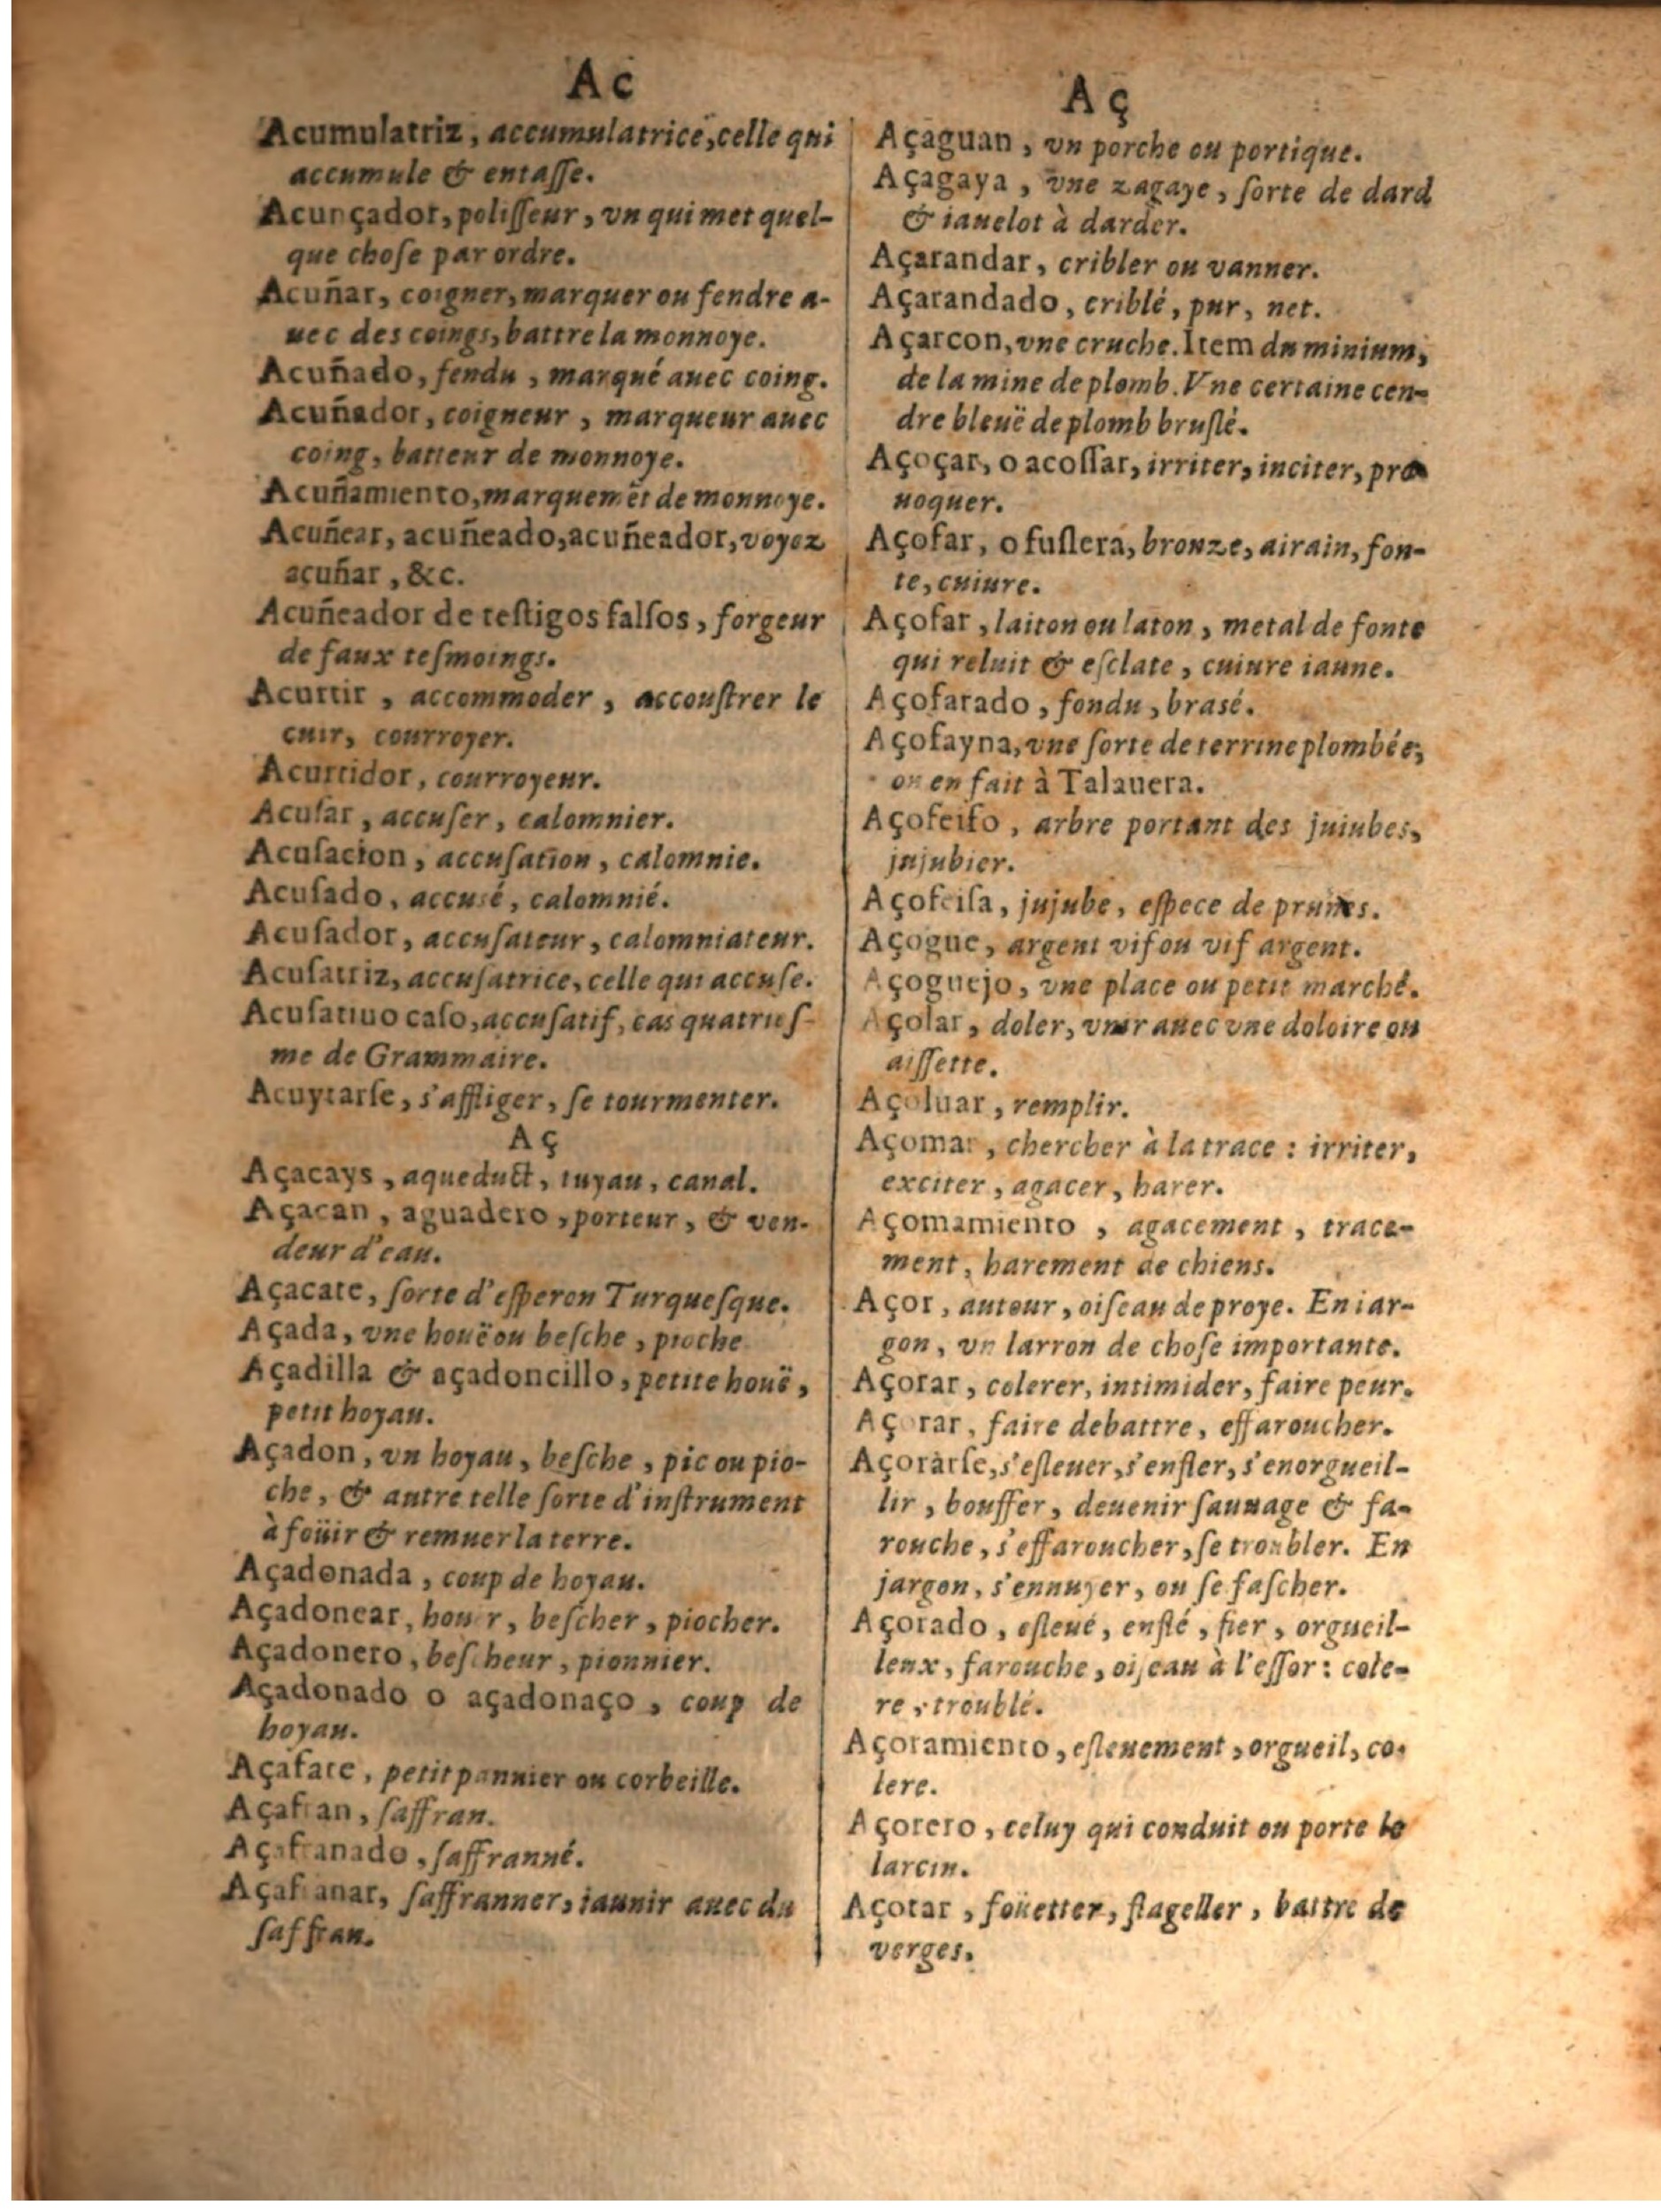 Ac
Acumulatriz, accumulatrice, celle qui
accumule & entaſſe.
Acunçador, poliſſeur, vn qui met quel-
que choſe par ordre.
Acuñar, coigner, marquer ou fendre a-
uec des coings, battre la monnoye.
Acuñado, fendu, marqué auec coing.
Acuñador, coigneur, marqueur auec
coing, batteur de monnoye.
Acuñamiento, marquemẽt de monnoye.
Acuñear, acuñeado, acuñeador, voyez
acuñar, &c.
Acuñeador de teſtigos falſos, forgeur
de faux teſmoings.
Acurtir, accommoder, accouſtrer le
cuir, courroyer.
Acurtidor, courroyeur.
Acuſar, accuſer, calomnier.
Acuſacion, accuſation, calomnie.
Acuſado, accusé, calomnié.
Acuſador, accuſateur, calomniateur.
Acuſatriz, accuſatrice, celle qui accuſe.
Acuſatiuo caſo, accuſatif, cas quatrieſ-
me de Grammaire.
Acuytarſe, s'affliger, ſe tourmenter.
Aç
Açacays, aqueduct, tuyau, canal.
Açacan, aguadero, porteur, & ven-
deur d'eau.
Açacate, ſorte d'eſperon Turqueſque.
Açada, vne houë ou beſche, pioche
Açadilla & açadoncillo, petite houë,
petit hoyau.
Açadon, vn hoyau, beſche, pic ou pio-
che, & autre telle ſorte d'inſtrument
à foüir & remuer la terre.
Açadonada, coup de hoyau.
Açadonear, houer, beſcher, piocher.
Açadonero, beſcheur, pionnier.
Açadonado o açadonaço, coup de
hoyau.
Açafate, petit pannier ou corbeille.
Açafran, ſaffran.
Açafranado, ſaffranné.
Açafranar, ſaffranner, iaunir auec du
ſaffran.
Aç
Açaguan, vn porche ou portique.
Açagaya, vne zagaye, ſorte de dard
& iauelot à darder.
Açarandar, cribler ou vanner.
Açarandado, criblé, pur, net.
Açarcon, vne cruche. Item du minium,
de la mine de plomb. Vne certaine cen-
dre bleuë de plomb bruſlé.
Açoçar, o acoſſar, irriter, inciter, pro
uoquer.
Açofar, o fuſlera, bronze, airain, fon-
te, cuiure.
Açofar, laiton ou laton, metal de fonte
qui reluit & eſclate, cuiure iaune.
Açofarado, fondu, brasé.
Açofayna, vne ſorte de terrine plombée;
on en fait à Talauera.
Açofeifo, arbre portant des juiubes,
jujubier.
Açofeiſa, jujube, eſpece de prunes.
Açogue, argent vif ou vif argent.
Açoguejo, vne place ou petit marché.
Açolar, doler, vnir auec vne doloire ou
aiſſette.
Açoluar, remplir.
Açomar, chercher à la trace : irriter,
exciter, agacer, harer.
Açomamiento, agacement, trace-
ment, harement de chiens.
Açor, autour, oiſeau de proye. En iar-
gon, vn larron de choſe importante.
Açorar, colerer, intimider, faire peur.
Açorar, faire debattre, effaroucher.
Açorarſe, s'eſleuer, s'enfler, s'enorgueil-
lir, bouffer, deuenir ſauuage & fa-
rouche, s'effaroucher, ſe troubler. En
jargon, s'ennuyer, ou ſe faſcher.
Açorado, eſleué, enflé, fier, orgueil-
leux, farouche, oiſeau à l'eſſor : cole-
re, troublé.
Açoramiento, eſleuement, orgueil, co-
lere.
Açorero, celuy qui conduit ou porte le
larcin.
Açotar, foüetter, flageller, battre de
verges.